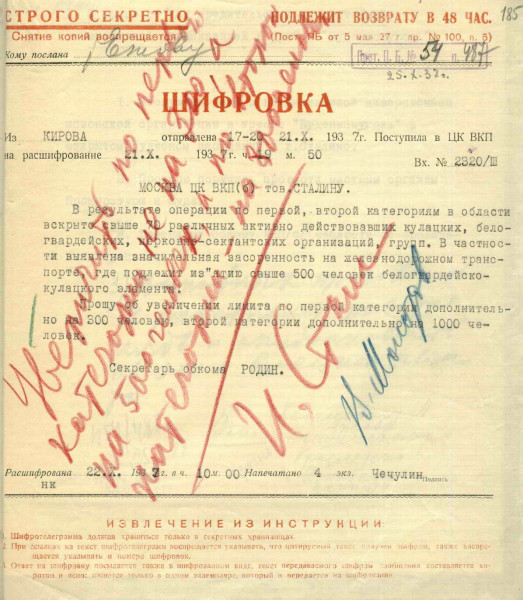 СТРОГО СЕКРЕТНО
Снятие копий воспрещается
ПОДЛЕЖИТ ВОЗВРАТУ В 48 ЧАС.
(Пост. ПБ от 5 мая 27 г. пр. № 100, п. 5)
185
Кому послана Ежову
Прот. П.Б. № 54 п. 487
25.X.37г.
ШИФРОВКА
Из КИРОВА отправлена 17-20 21.X 1937г. Поступила в ЦК ВКП
на расшифрование 21.X. 1937г. ч. 19 м. 50
Вх. № 2320/Ш
МОСКВА ЦК ВКП(б) тов. СТАЛИНУ.
В результате операции по первой, второй категориям в области
вскрыто свыше различных активно действовавших кулацких, бело-
гвардейских, церковно-сектантских организаций, групп. В частнос-
ти выявлена значительная засоренность на железнодорожном транс-
порте, где подлежит из"ятию свыше 500 человек белогвардейско-
кулацкого элемента.
Прошу об увеличении лимита по первой категории дополнитель-
но на 300 человек, второй категории дополнительно на 1000 че-
ловек.
Секретарь обкома РОДИН.
Увеличить по первой
категории не на 300, а
на 500 человек, а по второй
категории – на 800 человек
И. Сталин
В. Молотов
Расшифрована 22.X 1937г в ч. 10 м. 00 Напечатано 4 экз. Чечулин
Подпись
нк
ИЗВЛЕЧЕНИЕ ИЗ ИНСТРУКЦИИ:
1. Шифротелеграмма должна храниться только в секретных хранилищах.
2. При ссылках на текст шифротелеграммы воспрещается указывать, что цитируемый текст получен шифром, также воспре-
щается указывать и номера шифровок.
3. Ответ на шифровку посылается также в шифрованном виде, текст передаваемого шифром сообщения составляется
и пишется только в одном экземпляре, который и передается на шифрование